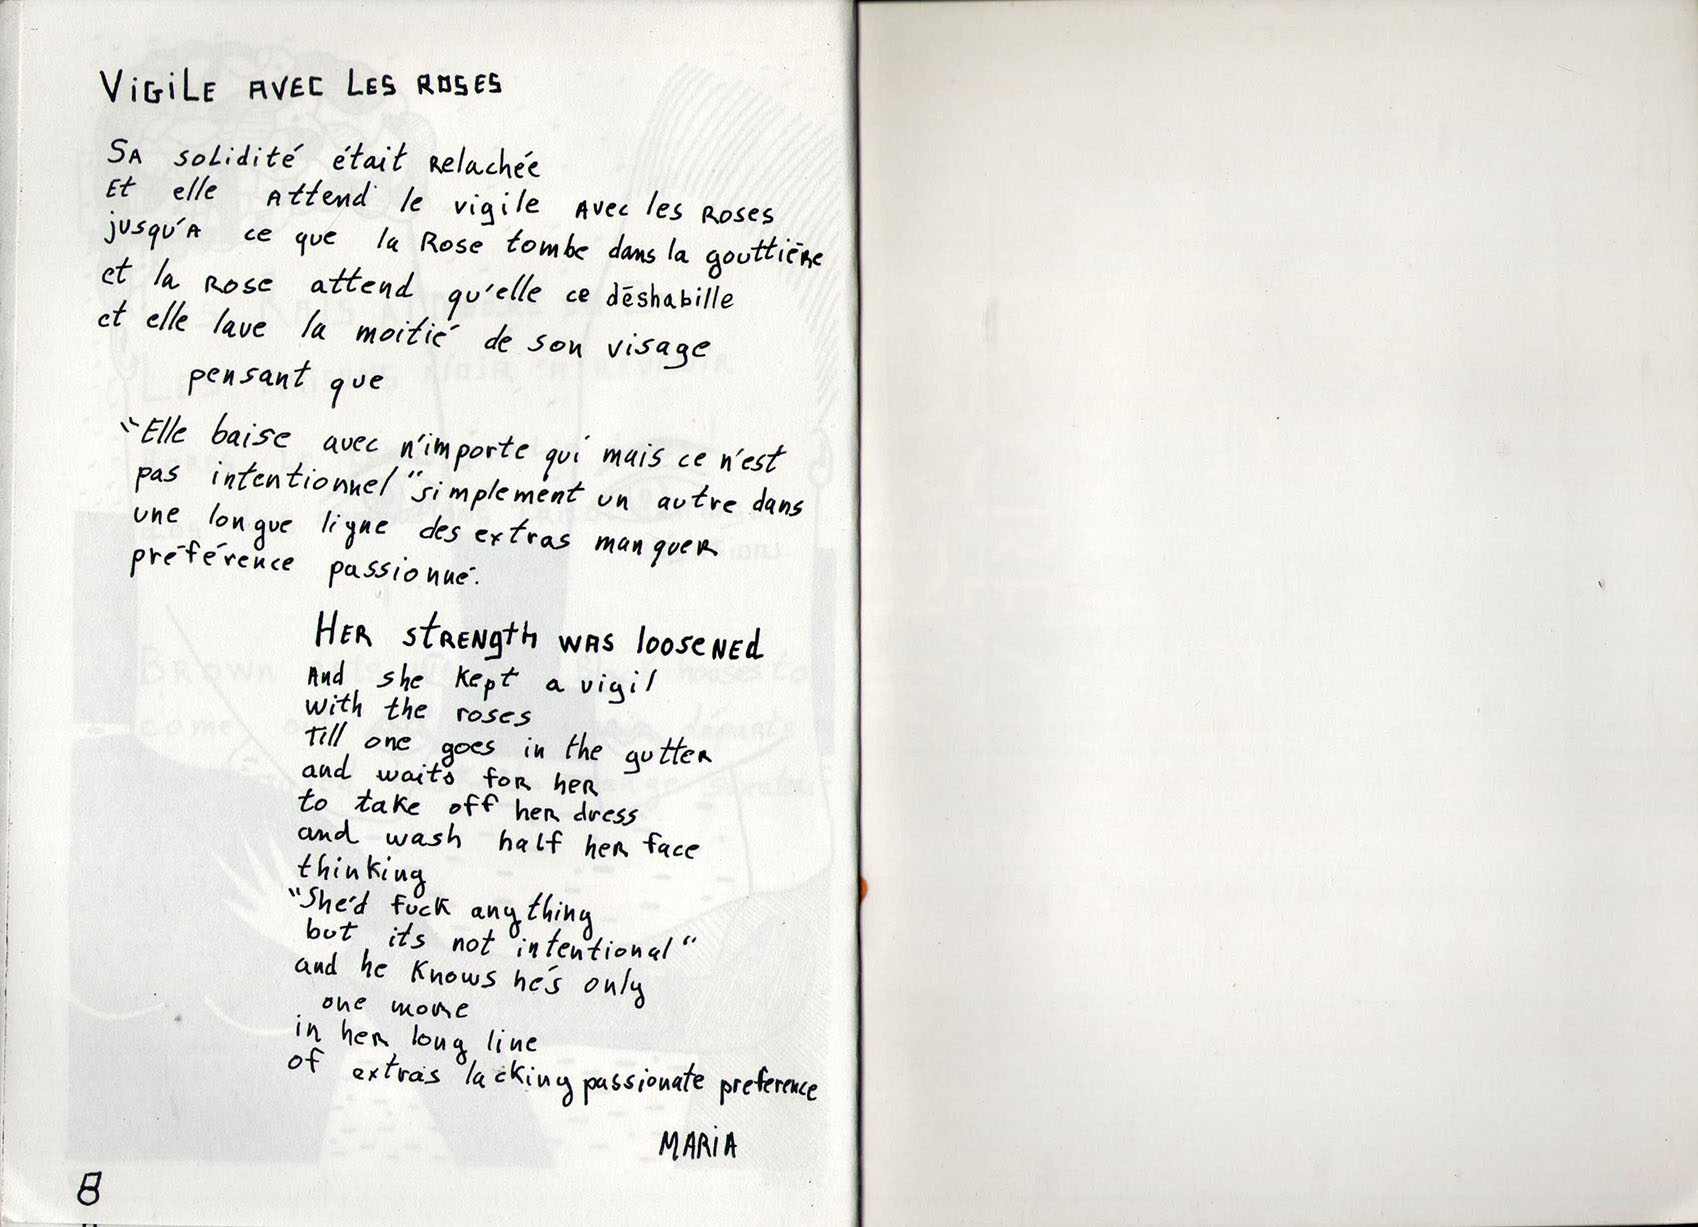 ViGiLE AVEC LES ROSES
SA solidité était Relachée
Et elle Attend le vigile Avec les Roses
jusqu'A ce que la Rose tombe dans la gouttière
et la Rose attend qu'elle ce déshabille
et elle lave la moitié de son visage
pensant que
"Elle baise avec n'importe qui mais ce n'est
pas intentionnel" simplement un autre dans
une longue ligne des extras manquer
préférence passionné.
HER stRENgth was loosened
And she kept a vigil
with the roses
till one goes in the gutter
and waits for her
to take off her dress
and wash half her face
thinking
"She'd fuck anything
but its not intentional"
and he knows he's only
one more
in her long line
of extras lacking passionate preference
MARiA
8